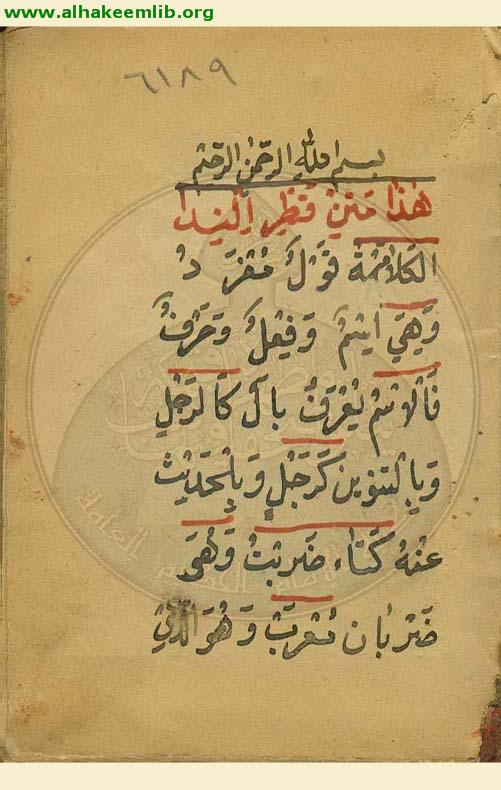 www.alhakeemlib.org
٦١٨٩
بسم الله الرحمن الرحيم
هٰذَا مَتْنُ قَطْرِ النَّدَا
الكَلامَمَةُ قَوْلٌ مُفْرَدٌ
وَهِيَ اِسْمٌ وَفِعْلٌ وَحَرْفٌ
فَالْاِسْمُ يُعْرَفُ بِالْ كَالرَّجُلِ
وَبِالتَّنْوِينِ كَرَجُلٍ وَبِالْحَدِيْثِ
عَنْهُ كَتَاءِ ضَرَبْتُ وَهُوَ
ضَرْبَانِ مُعْرَبٌ وَهُوَ الَّذِيْ